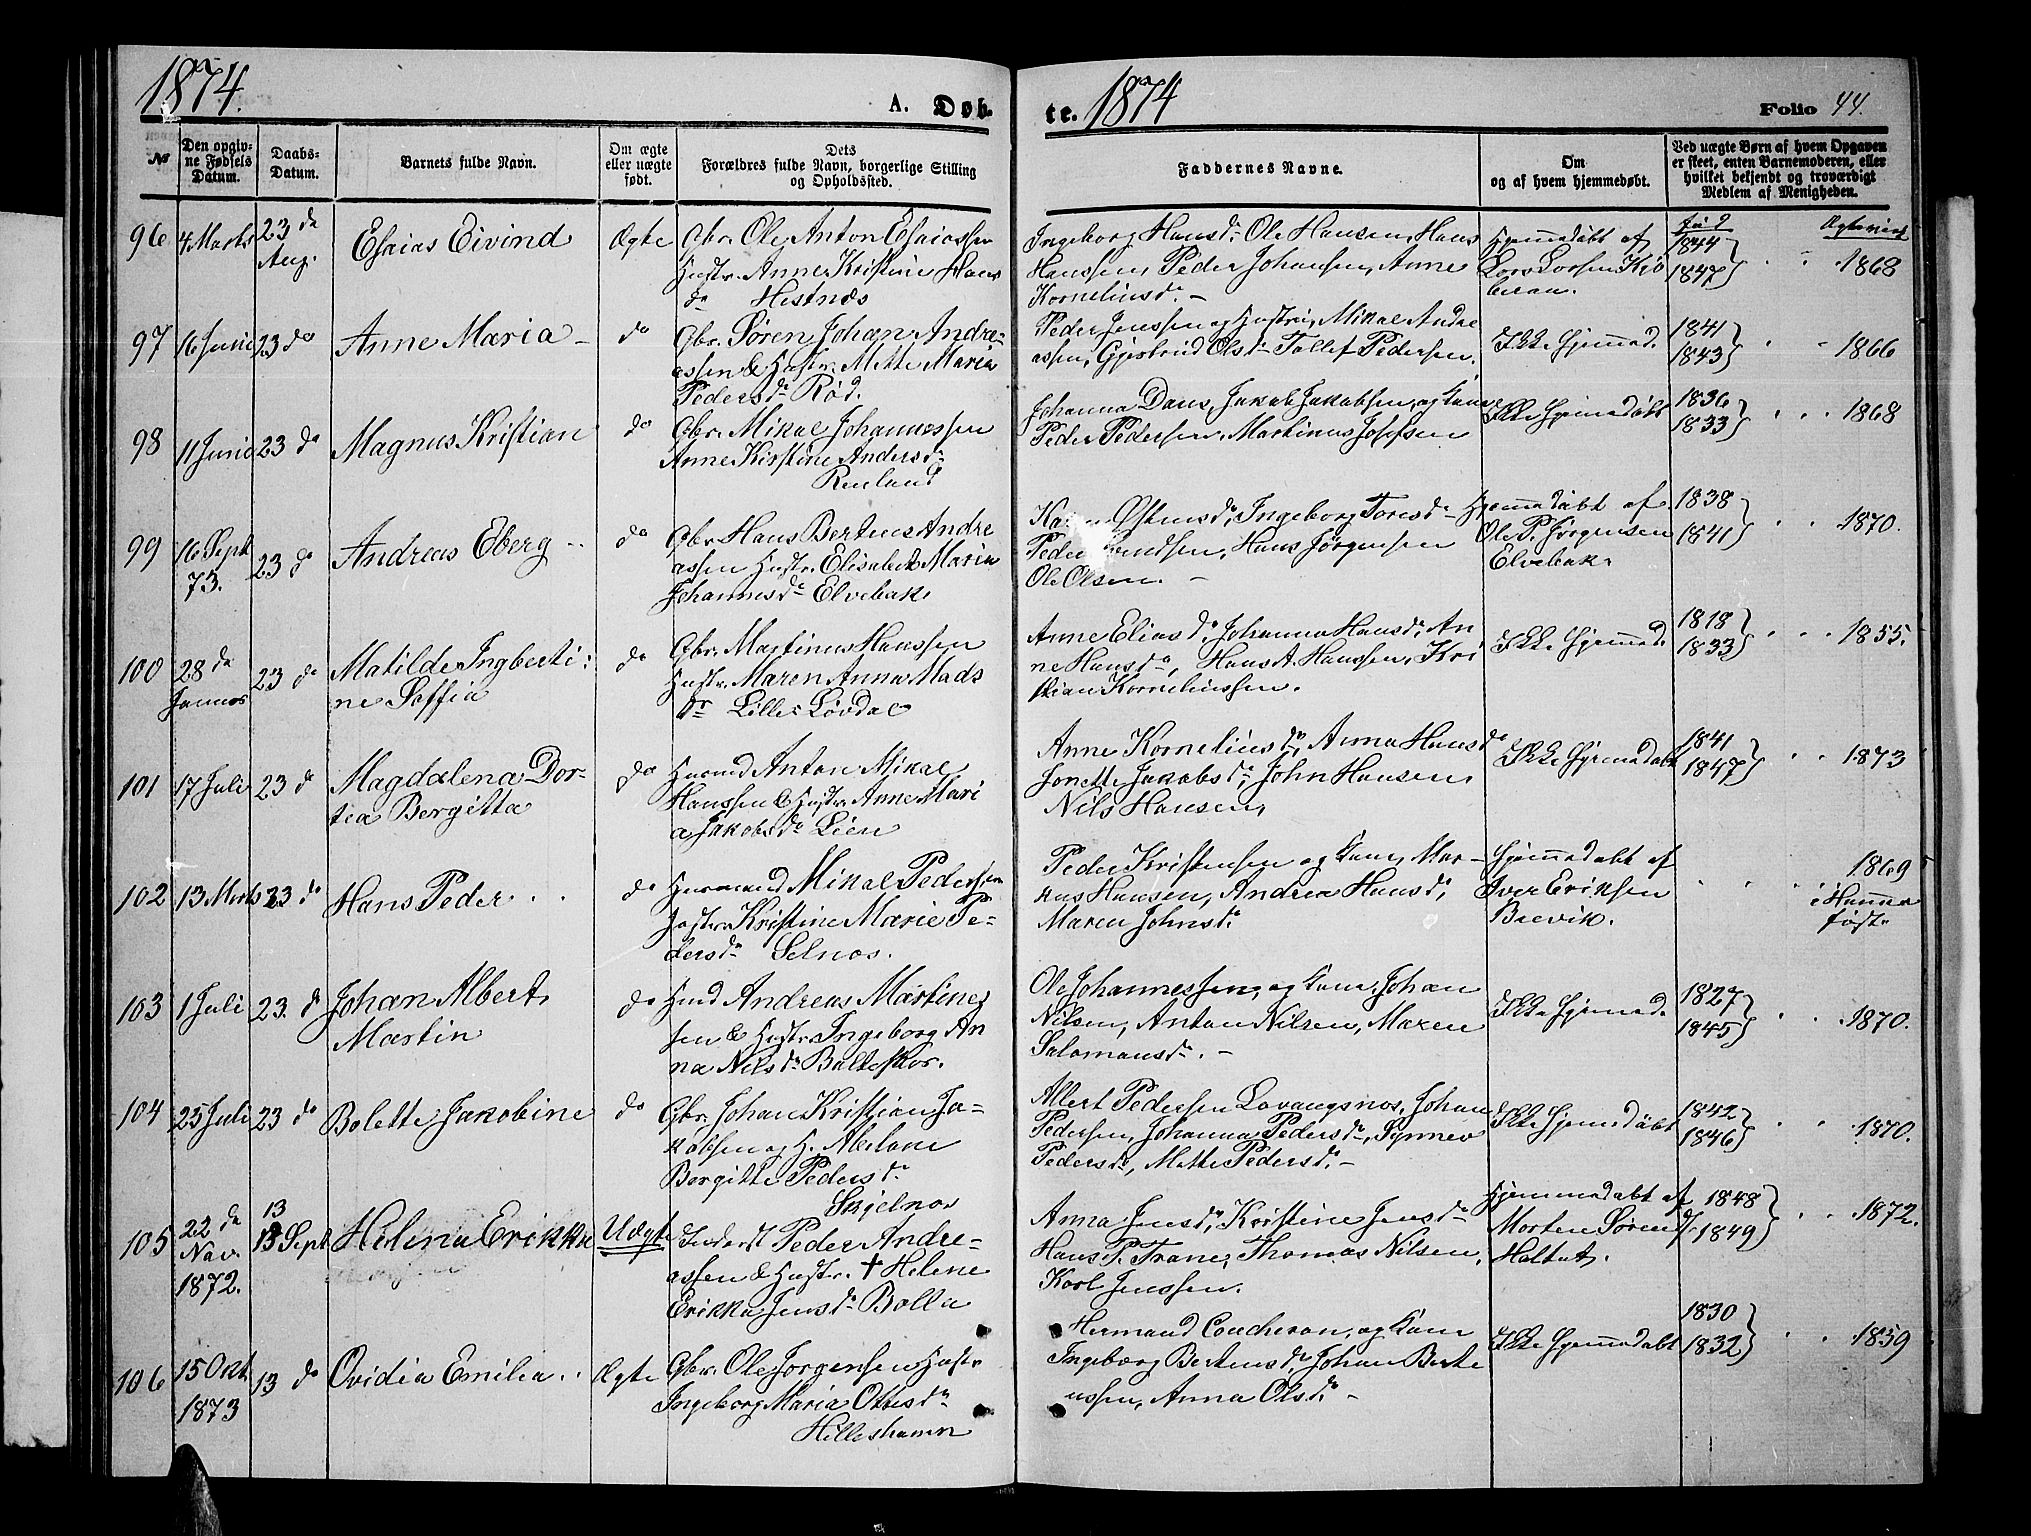 1874.
A. Døb-
te. 1874
Folio 44.
No
Den opgiv-
ne Fødsels
Datum.
Daabs-
Datum.
Barnets fulde Navn.
Om ægte
eller uægte
født.
Dets
Forældres fulde Navn, borgerlige Stilling
og Opholdssted.
Faddernes Navne.
Om
og af hvem hjemmedøbt.
Ved uægte Børn af hvem Opgaven
er skeet, enten Barnemoderen, eller
hvilket bekjendt og troværdigt
Medlem af Menigheden.
96
4 Marts
23 do
Aug.
Esaias Eivind
Ægte
Gbr. Ole Anton Esaiassen
Hustr. Anne Kristine Hans
da Hestnæs
Ingeborg Hansda Ole Hansen, Hans
Hanssen, Peder Johansen, Anne
Korneliusda. —
Hjemmedøbt af
Lars Larsen
1844
1847
1868
97
16 Juni
23 do
Anne Maria
do
Gbr. Søren Johan Andre-
assen & Hustr. Mette Maria
Pedersda Rød.
Peder Jenssen og Hustru, Mikal Andre
assen, Gjertrud Olsda Tollef Pedersen.
Ikke Hjemmed.
1841
1843
1866
98
11 Juni
23 do
Magnus Kristian
do
Gbr. Mikal Johannessen
Anne Kirstine Andersda
Renland
Johanna Dans, Jakob Jakobsen, og Kone
Peder Pedersen, Martinus Josefsen
Ikke Hjemmedøbt
1836
1833
1868
99
16 Sept
73.
23 do
Andreas Eberg
do
Gbr. Hans Berteus Andre
assen Hustr. Elisabet Maria
Johannesda Elvebak
Østensda, Ingeborg Toresda
Peder Hans Jørgensen
Ole Olsen. —
Hjemmedøbt af
Ole P. Jørgensen
Elvebak
1838
1841
1870.
100
28 da
Januar
23 do
Matilde Ingberti-
ne Soffia
do
Gbr. Martinus Hanssen
Hustr. Maren Anna Mads
dr Lille Løvdal
Anne Eliasda, Johanna Hansda, An
ne Hansda, Hans A. Hanssen, Kri
stian Korneliussen.
Ikke Hjemmed.
1818
1833
1855.
101
17 Juli
23 do
Magdalena Dor-
tea Bergitta
do
Husmd Anton Mikal
Hanssen & Hustr. Anne Mari
a Jakobsda Lien
Anne Korneliusda, Anna Hansda
Jonette Jakobsda, John Hansen
Nils Hansen,
Ikke Hjemmedøbt
1841
1847
1873
102
13 Marts
23 do
Hans Peder
do
Husmand Mikal Pedersen
Hustru Kristine Marie Pe-
dersda Selnos.
Peder Kristensen og Kone, Mar-
kus Hansen, Andrea Hansda,
Maren Johnsda
Hjemmedøbt af
Iver Eriksen
Brevik.
1869
103
1 Juli
23. do
Johan Albert
Martin
do
Hmd Andreas Martines
sen & Hustr. Ingeborg An
na Nilsda Balteskar.
Ole Johannessen, og Kone, Johan
Nilsen, Anton Nilsen, Maren
Salomonsda. —
Ikke Hjemmed.
1827
1845
1870.
104
25 Juli
23 do
Bolette Jakobine
do
Gbr. Johan Kristian Ja-
kobsen og H. Abelone
Bergitte Pedersda
Skjelnos
Albert Pedersen Lavangsnos, Johan
Pedersen, Johanna Pedersda, Synnev
Pedersda, Mette Pedersda. —
Ikke Hjemmedøbt
1842
1846
1870.
105
22 da
Nov.
1872.
13
13 Sept
Helena Erikka
Uægte
Inderst Peder Andre-
assen & Hustr. † Helene
Erikka Jensda Bolla
Anna Jensda, Kristine Jensda
Hans P. Trane, Thomas Nilsen,
Karl Jenssen.
Hjemmedøbt af
Morten Sørens
1848
1849
1872.
106
15 Okt
1873
13 do
Ovidia Emilia
Ægte
Gbr. Ole Jørgensen Hustr
Ingeborg Maria Ottesda
Hilleshamn
Hermand Coucheron, og Kone
Ingeborg Bertheusda, Johan Berte
ussen, Anna Olsda. —
Ikke Hjemmedøbt
1830
1832
1859